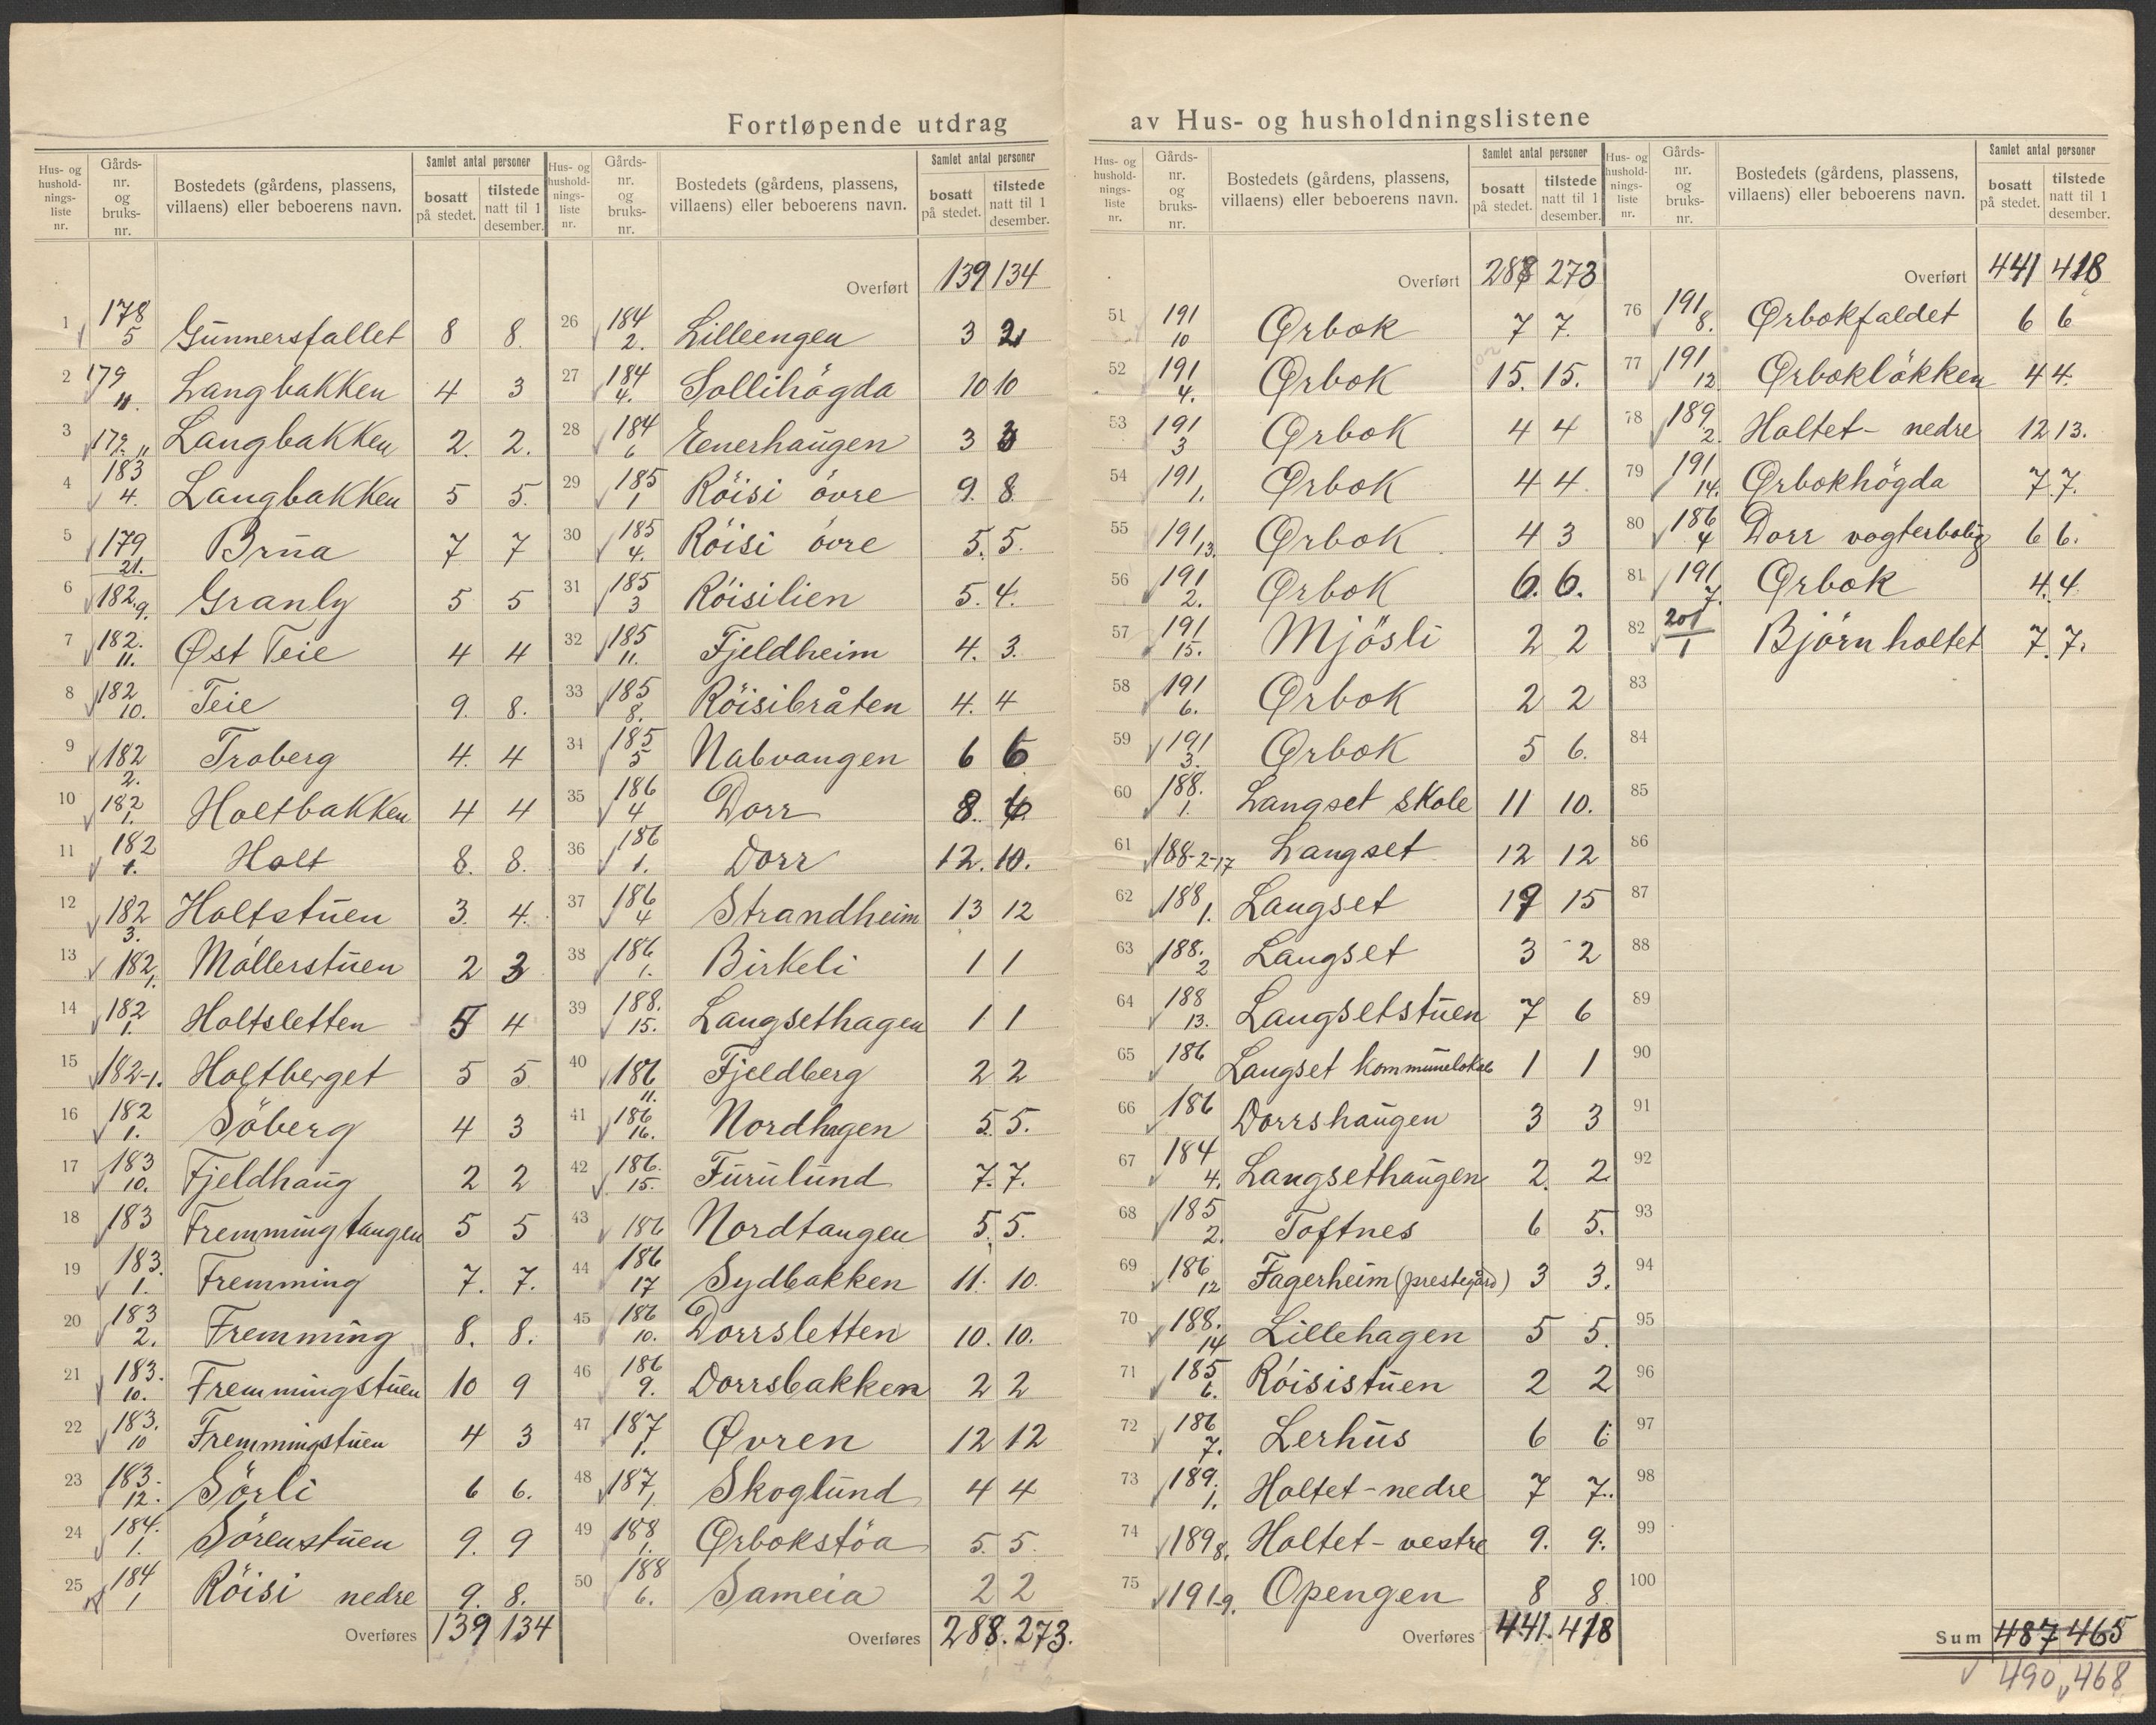 Fortløpende utdrag av Hus- og husholdningslistene
Hus- og husholdnings- liste nr. | Gårds- nr. og bruks- nr. | Bostedets (gårdens, plassens, villaens) eller beboerens navn. | Samlet antal personer: bosatt på stedet. | tilstede natt til 1 desember.
1 178 5 Gunnersfallet 8 8.
2 179 11. Langbakken 4 3
3 179. 11 Langbakken 2. 2.
4 183 4. Langbakken 5 5.
5 179 21. Brua 7 7
6 182. 9. Granly 5 5
7 182. 11. Øst Teie 4 4
8 182 10. Teie 9. 8.
9 182 2. Troberg 4. 4
10 182 1. Holtbakken 4 4
11 182 1. Holt 8. 8.
12 182 3. Holtstuen 3. 4.
13 182, 1. Möllerstuen 2 3
14 182 1. Holtsletten 5 4
15 182-1. Holtberget 5 5
16 182 1. Söberg 4 3
17 183 10. Fjeldhaug 2 2
18 183 Fremmingtangen 5 5
19 183. 1. Fremming 7. 7.
20 183 2. Fremming 8. 8.
21 183. 10. Fremmingstuen 10 9
22 183. 10 Fremmingstuen 4 3
23 183. 12. Sörli 6 6.
24 184. 1. Sörenstuen 9. 9
25 184 1 Röisi nedre 9. 8.
Overføres 139 134
Hus- og husholdnings- liste nr. | Gårds- nr. og bruks- nr. | Bostedets (gårdens, plassens, villaens) eller beboerens navn. | Samlet antal personer: bosatt på stedet. | tilstede natt til 1 desember.
Overført 139 134
26 184 2. Lilleengen 3 2
27 184 4. Sollihögda 10 10
28 184 6 Eenerhaugen 3 3
29 185 1 Röisi övre 9. 8
30 185 4. Röisi övre 5. 5.
31 185 3 Röisilien 5. 4.
32 185 11. Fjeldheim 4. 3.
33 185 8. Röisibråten 4. 4
34 185 5 Nabvangen 6 6
35 186 4 Dorr 8.
36 186 1. Dorr 12. 10.
37 186 4 Strandheim 13 12
38 186 1. Birkeli 1 1
39 188. 15. Langsethagen 1 1
40 186 11. Fjeldberg 2 2
41 186 16. Nordhagen 5. 5.
42 186. 15. Furulund 7. 7.
43 186 Nordtangen 5. 5.
44 186 17 Sydbakken 11. 10.
45 186 10. Dorrsletten 10. 10.
46 186 9. Dorrsbakken 2 2
47 187 1. Øvren 12 12
48 187, 1 Skoglund 4 4
49 188 1. Ørbokstöa 5. 5.
50 188 6. Sameia 2 2
Overføres 288. 273.
Hus- og husholdnings- liste nr. | Gårds- nr. og bruks- nr. | Bostedets (gårdens, plassens, villaens) eller beboerens navn. | Samlet antal personer: bosatt på stedet. | tilstede natt til 1 desember.
Overført 288 273
51 191 10 Ørbok 7 7.
52 191 4. Ørbok 15. 15.
53 191 3 Ørbok 4 4
54 191 1. Ørbok 4 4
55 191 13. Ørbok 4 3
56 191 2. Ørbok 6. 6.
57 191 15. Mjösli 2 2
58 191 6. Ørbok 2 2
59 191 3. Ørbok 5 6.
60 188. 1. Langset skole 11 10.
61 188-2-17 Langset 12 12
62 188 1. Langset 15
63 188. 2 Langset 3 2
64 188 13. Langsetstuen 7 6
65 186 Langset kommunelokale 1 1
66 186 Dorrshaugen 3 3
67 184 4. Langsethaugen 2. 2
68 185 2. Toftnes 6 5.
69 186 12 Fagerheim (prestegård) 3 3.
70 188. 14 Lillehagen 5 5.
71 185 6. Röisistuen 2 2
72 186 7. Lerhus 6 6
73 189. 1. Holtet-nedre 7 7.
74 189 8. Holtet-vestre 9. 9.
75 191-9. Opengen 8 8
Overføres 441. 418
Hus- og husholdnings- liste nr. | Gårds- nr. og bruks- nr. | Bostedets (gårdens, plassens, villaens) eller beboerens navn. | Samlet antal personer: bosatt på stedet. | tilstede natt til 1 desember.
Overført 441 418
76 191 8. Ørbokfaldet 6 6
77 191 12 Ørboklökken 4 4.
78 189 2. Holtet- nedre 12 13.
79 191 14. Ørbokhögda 7. 7.
80 186 4 Dorr vogterbolig 6 6.
81 191 7. Ørbok 4. 4
82 201 1 Björnholtet 7. 7.
83
84
85
86
87
88
89
90
91
92
93
94
95
96
97
98
99
100
Sum 487 465
490 468